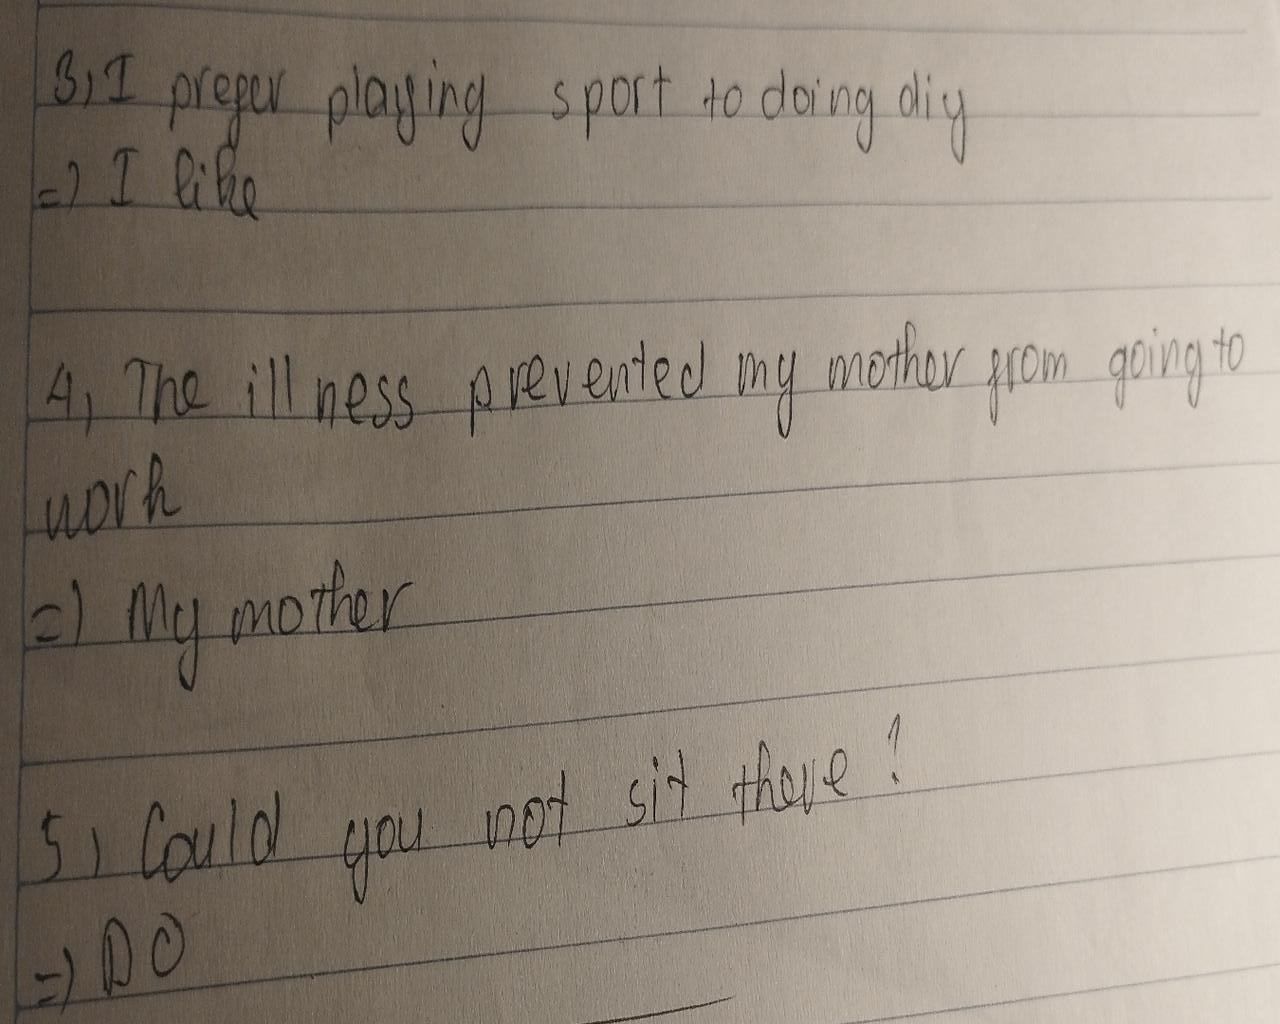 3, I prefer playing sport to doing diy
=) I like
4, The illness prevented my mother from going to
work
=) My mother
5, Could you not sit there?
=) DO